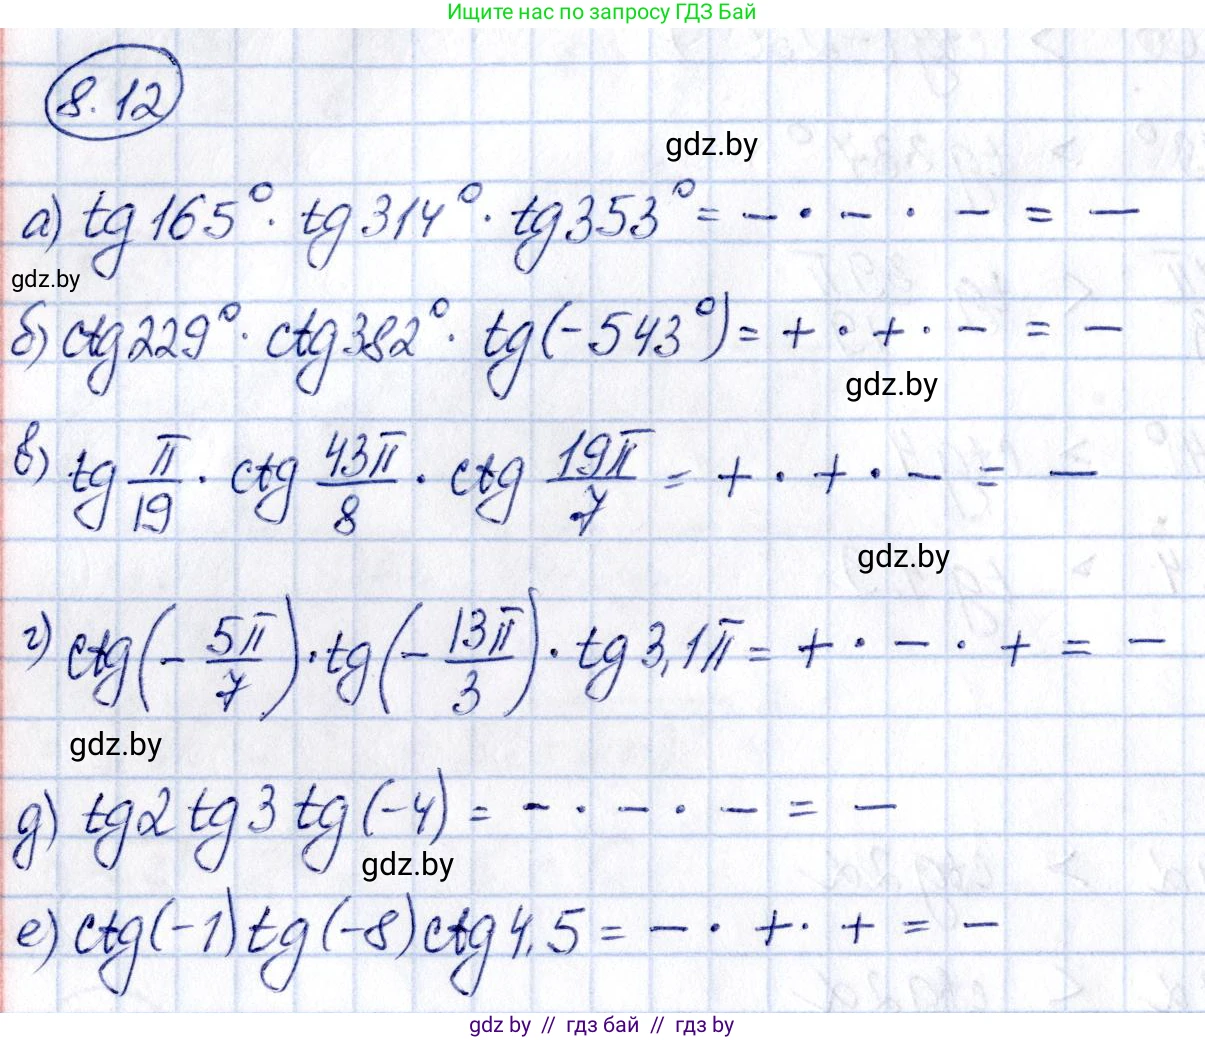 Ищите нас по запросу ГДЗ Бай
8.12
gdz.by
а) tg 165° · tg 314° · tg 353° = − · − · − = −
gdz.by
б) ctg 229° · ctg 382° · tg (−543°) = + · + · − = −
gdz.by
в) tg π/19 · ctg 43π/8 · ctg 19π/7 = + · + · − = −
gdz.by
г) ctg (− 5π/7) · tg (− 13π/3) · tg 3,1π = + · − · + = −
gdz.by
д) tg 2 tg 3 tg (−4) = − · − · − = −
gdz.by
е) ctg (−1) tg (−8) ctg 4,5 = − · + · + = −
gdz by // гдз бай // гдз by